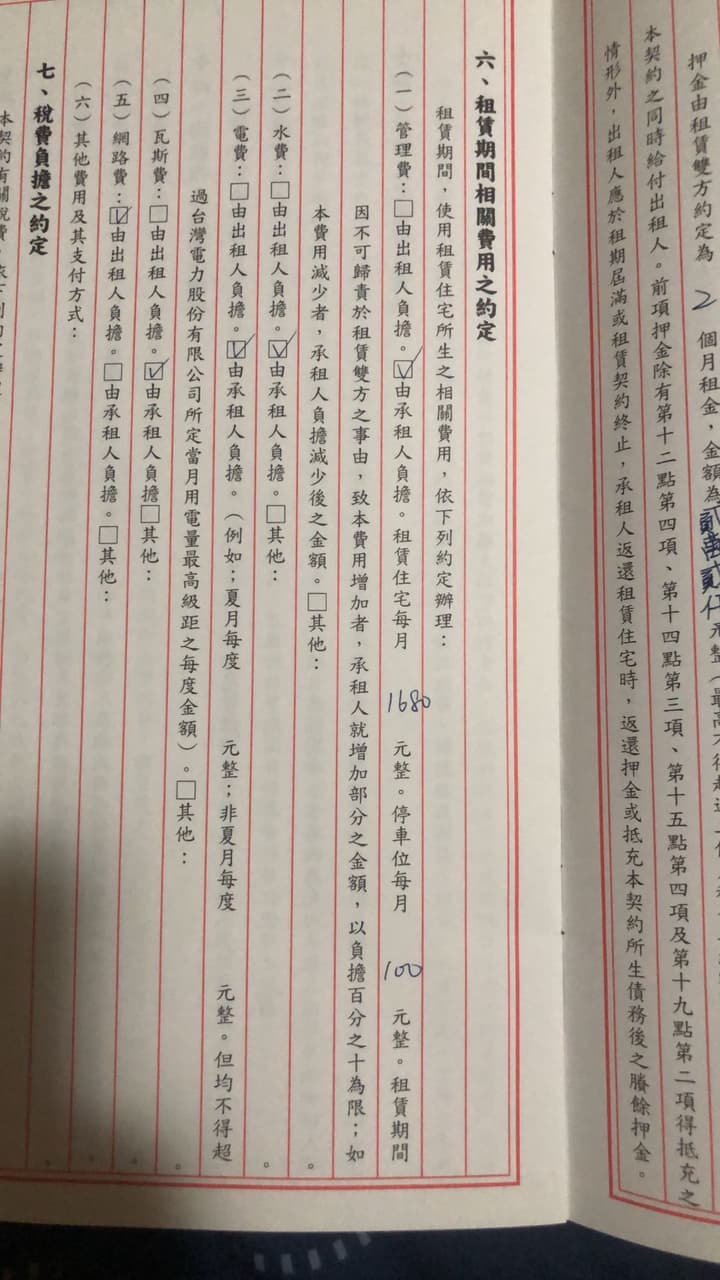 押金由租賃雙方約定為 2 個月租金，金額為
本契約之同時給付出租人。前項押金除有第十二點第四項、第十四點第三項、第十五點第四項及第十九點第二項得抵充之
情形外，出租人應於租期屆滿或租賃契約終止，承租人返還租賃住宅時，返還押金或抵充本契約所生債務後之賸餘押金。
六、租賃期間相關費用之約定
租賃期間，使用租賃住宅所生之相關費用，依下列約定辦理：
（一）管理費：□由出租人負擔。☑由承租人負擔。租賃住宅每月 1680 元整。停車位每月 100 元整。租賃期間
因不可歸責於租賃雙方之事由，致本費用增加者，承租人就增加部分之金額，以負擔百分之十為限；如
本費用減少者，承租人負擔減少後之金額。□其他：
（二）水費：□由出租人負擔。☑由承租人負擔。□其他：
（三）電費：□由出租人負擔。☑由承租人負擔。（例如；夏月每度 元整；非夏月每度 元整。但均不得超
過台灣電力股份有限公司所定當月用電量最高級距之每度金額）。□其他：
（四）瓦斯費：□由出租人負擔。☑由承租人負擔□其他：
（五）網路費：☑由出租人負擔。□由承租人負擔。□其他：
（六）其他費用及其支付方式：
七、稅費負擔之約定
本契約有關稅費